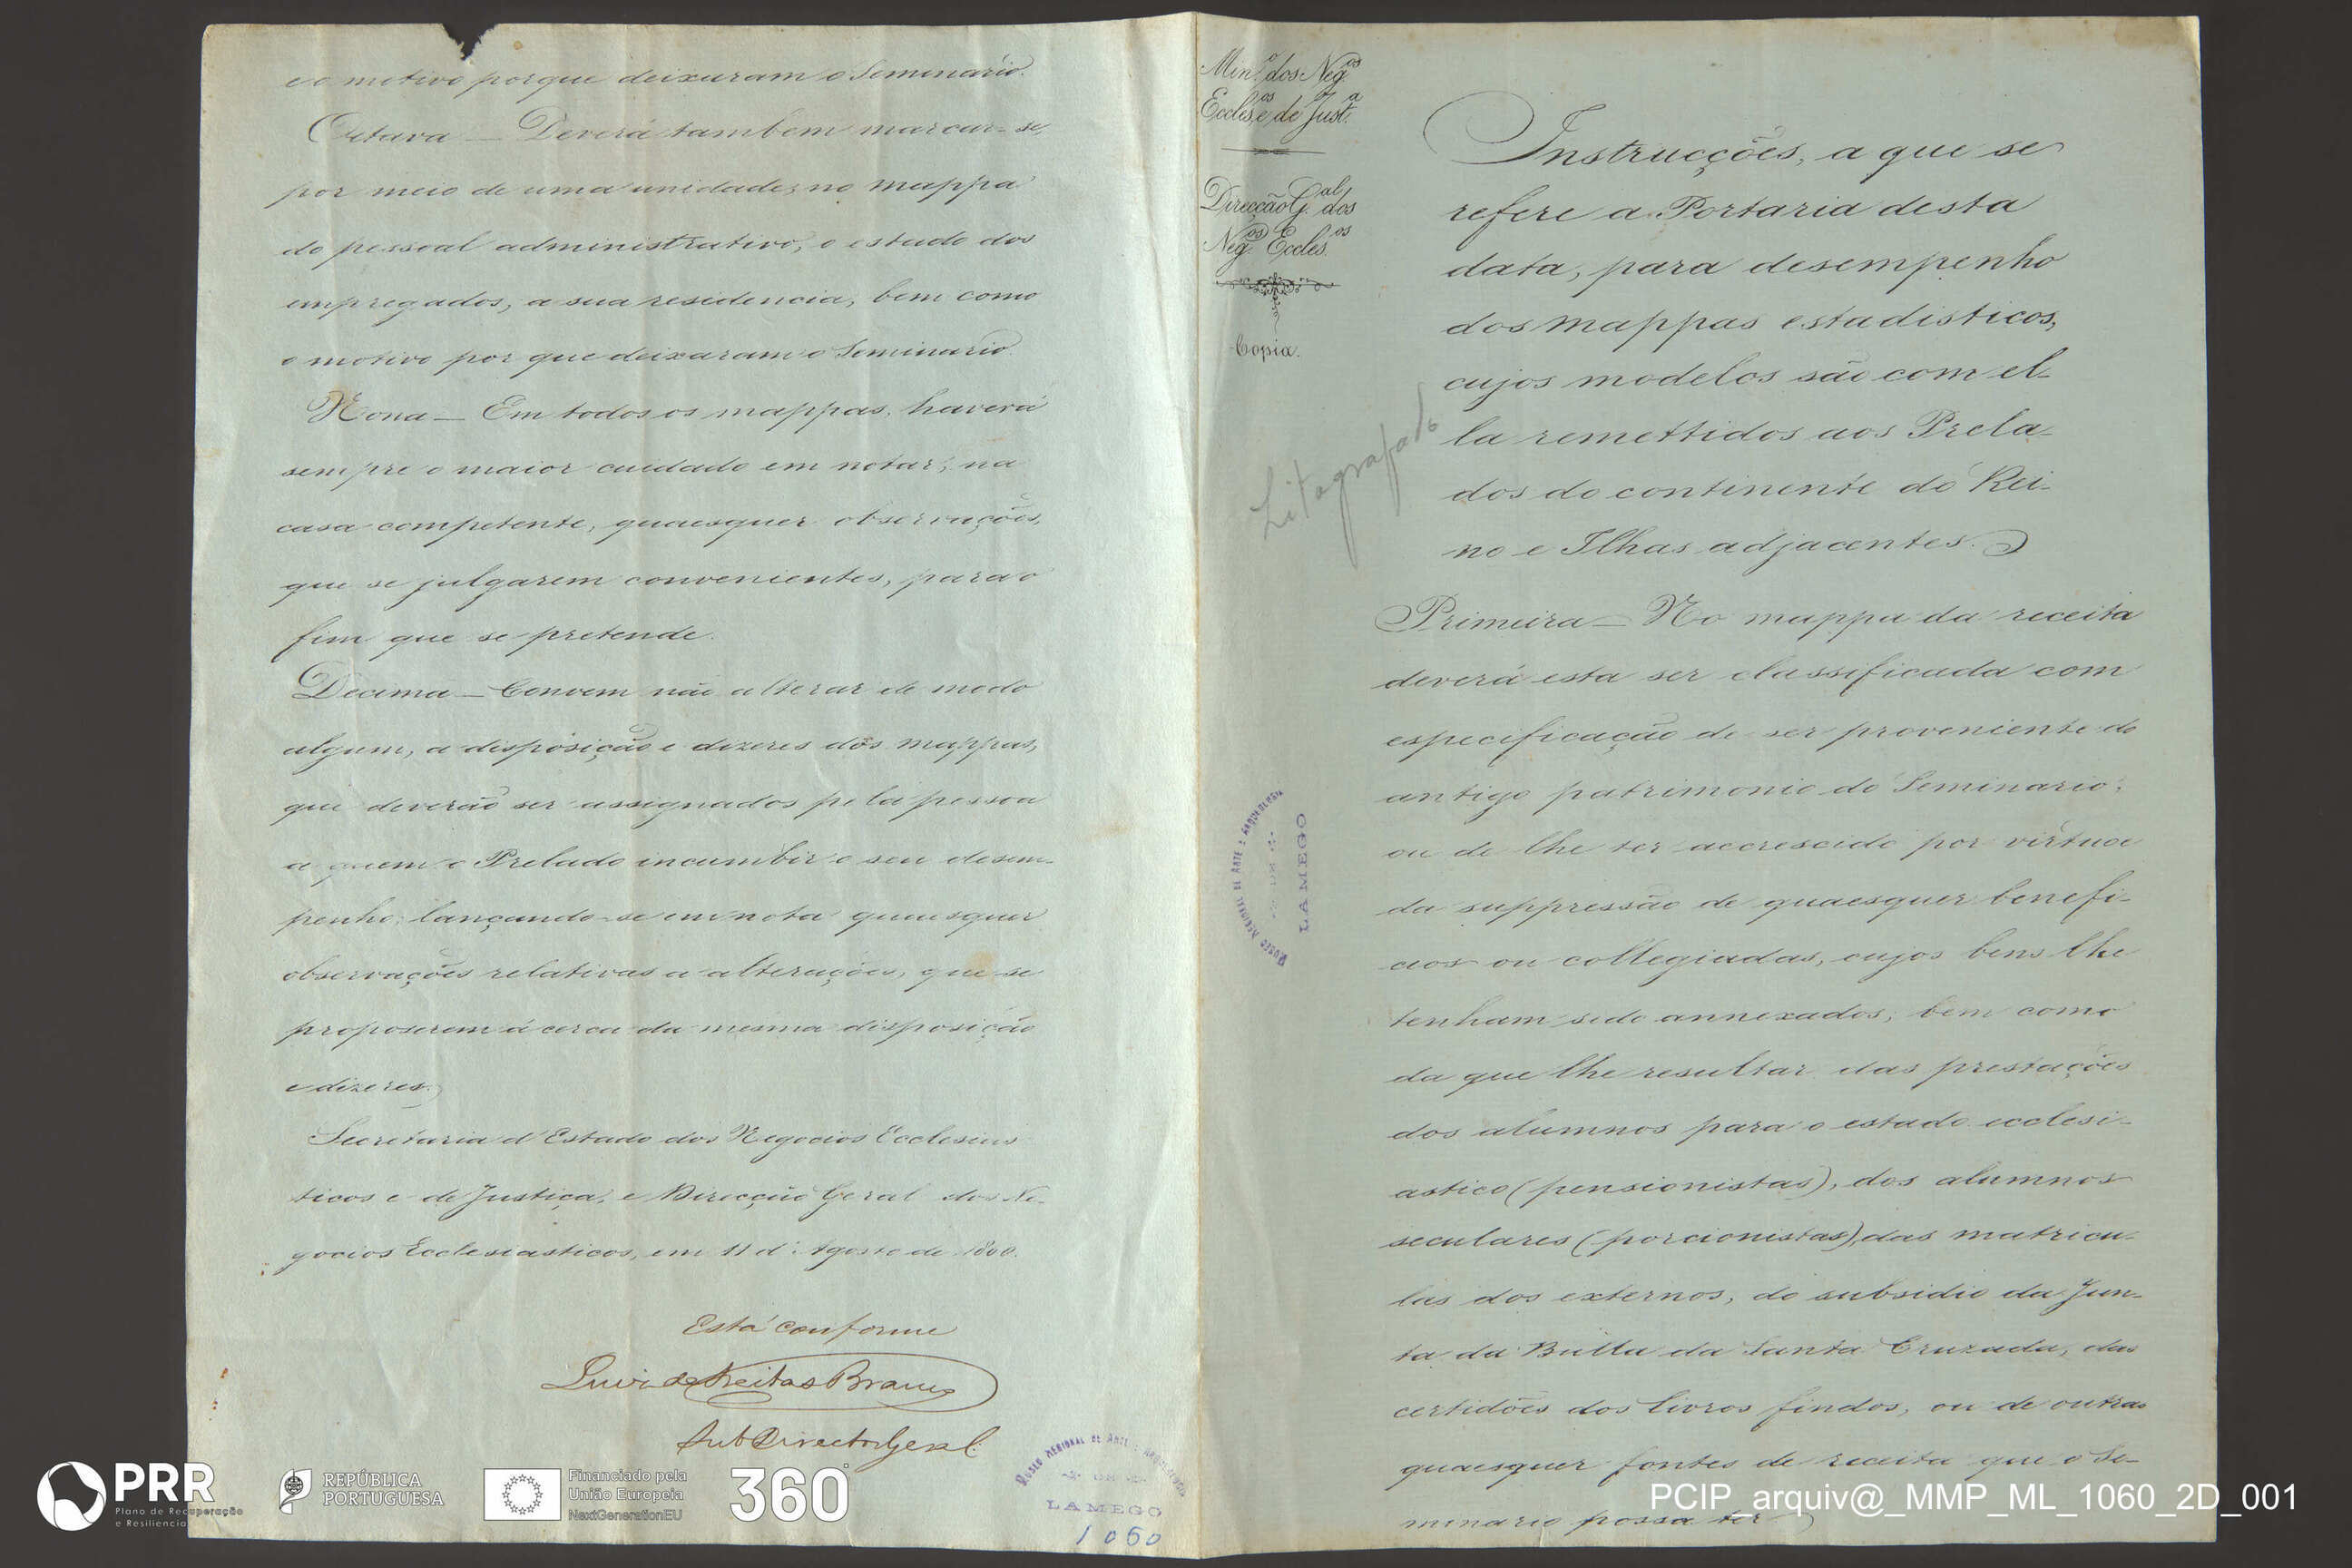 e o motivo porque deixaram o Seminario.
Oitava — Deverá tambem marcar-se,
por meio de uma unidade, no mappa
do pessoal administrativo, o estado dos
empregados, a sua residencia, bem como
o motivo por que deixaram o Seminario.
Nona — Em todos os mappas, haverá
sempre o maior cuidado em notar, na
casa competente, quaesquer observações,
que se julgarem convenientes, para o
fim que se pretende.
Decima — Convem não alterar de modo
algum, a disposição e dizeres dos mappas,
que deverão ser assignados pela pessoa
a quem o Prelado incumbir o seu desem-
penho; lançando-se em nota quaesquer
observações relativas a alterações, que se
proposerem á cerca da mesma disposição
e dizeres.
Secretaria d'Estado dos Negocios Ecclesias
ticos e de Justiça, e Direcção Geral dos Ne-
gocios Ecclesiasticos, em 11 d'Agosto de
Está conforme
Luiz de Freitas Branco
Sub Director Geral.
MUSEU REGIONAL DE ARTE E ARQUEOLOGIA
LAMEGO
1060
Min.º dos Neg.os
Eccles.os e de Just.a
Direcção G.al dos
Neg.os Eccles.os
Copia.
Litografado
Instrucções, a que se
refere a Portaria desta
data, para desempenho
dos mappas estadisticos,
cujos modelos são com el-
la remettidos aos Prela-
dos do continente do Rei-
no e Ilhas adjacentes.
Primeira — No mappa da receita
deverá esta ser classificada com
especificação de ser proveniente do
antigo patrimonio do Seminario,
ou de lhe ter accrescido por virtude
da suppressão de quaesquer benefi-
cios ou collegiadas, cujos bens lhe
tenham sido annexados; bem como
da que lhe resultar das prestações
dos alumnos para o estado eccles i-
astico (pensionistas), dos alumnos
seculares (porcionistas), das matricu-
las dos externos, do subsidio da Jun-
ta da Bulla da Santa Cruzada, das
certidões dos livros findos, ou de outras
quaesquer fontes de receita que o Se-
minario possa ter
MUSEU REGIONAL DE ARTE E ARQUEOLOGIA
LAMEGO
PRR
Plano de Recuperação
e Resiliência
REPÚBLICA
PORTUGUESA
Financiado pela
União Europeia
NextGenerationEU
360°
PCIP_arquiv@_MMP_ML_1060_2D_001